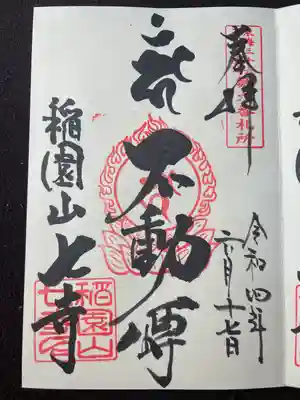 奉拝
令和四年
六月十七日
不動尊
稲園山七寺
稲園山